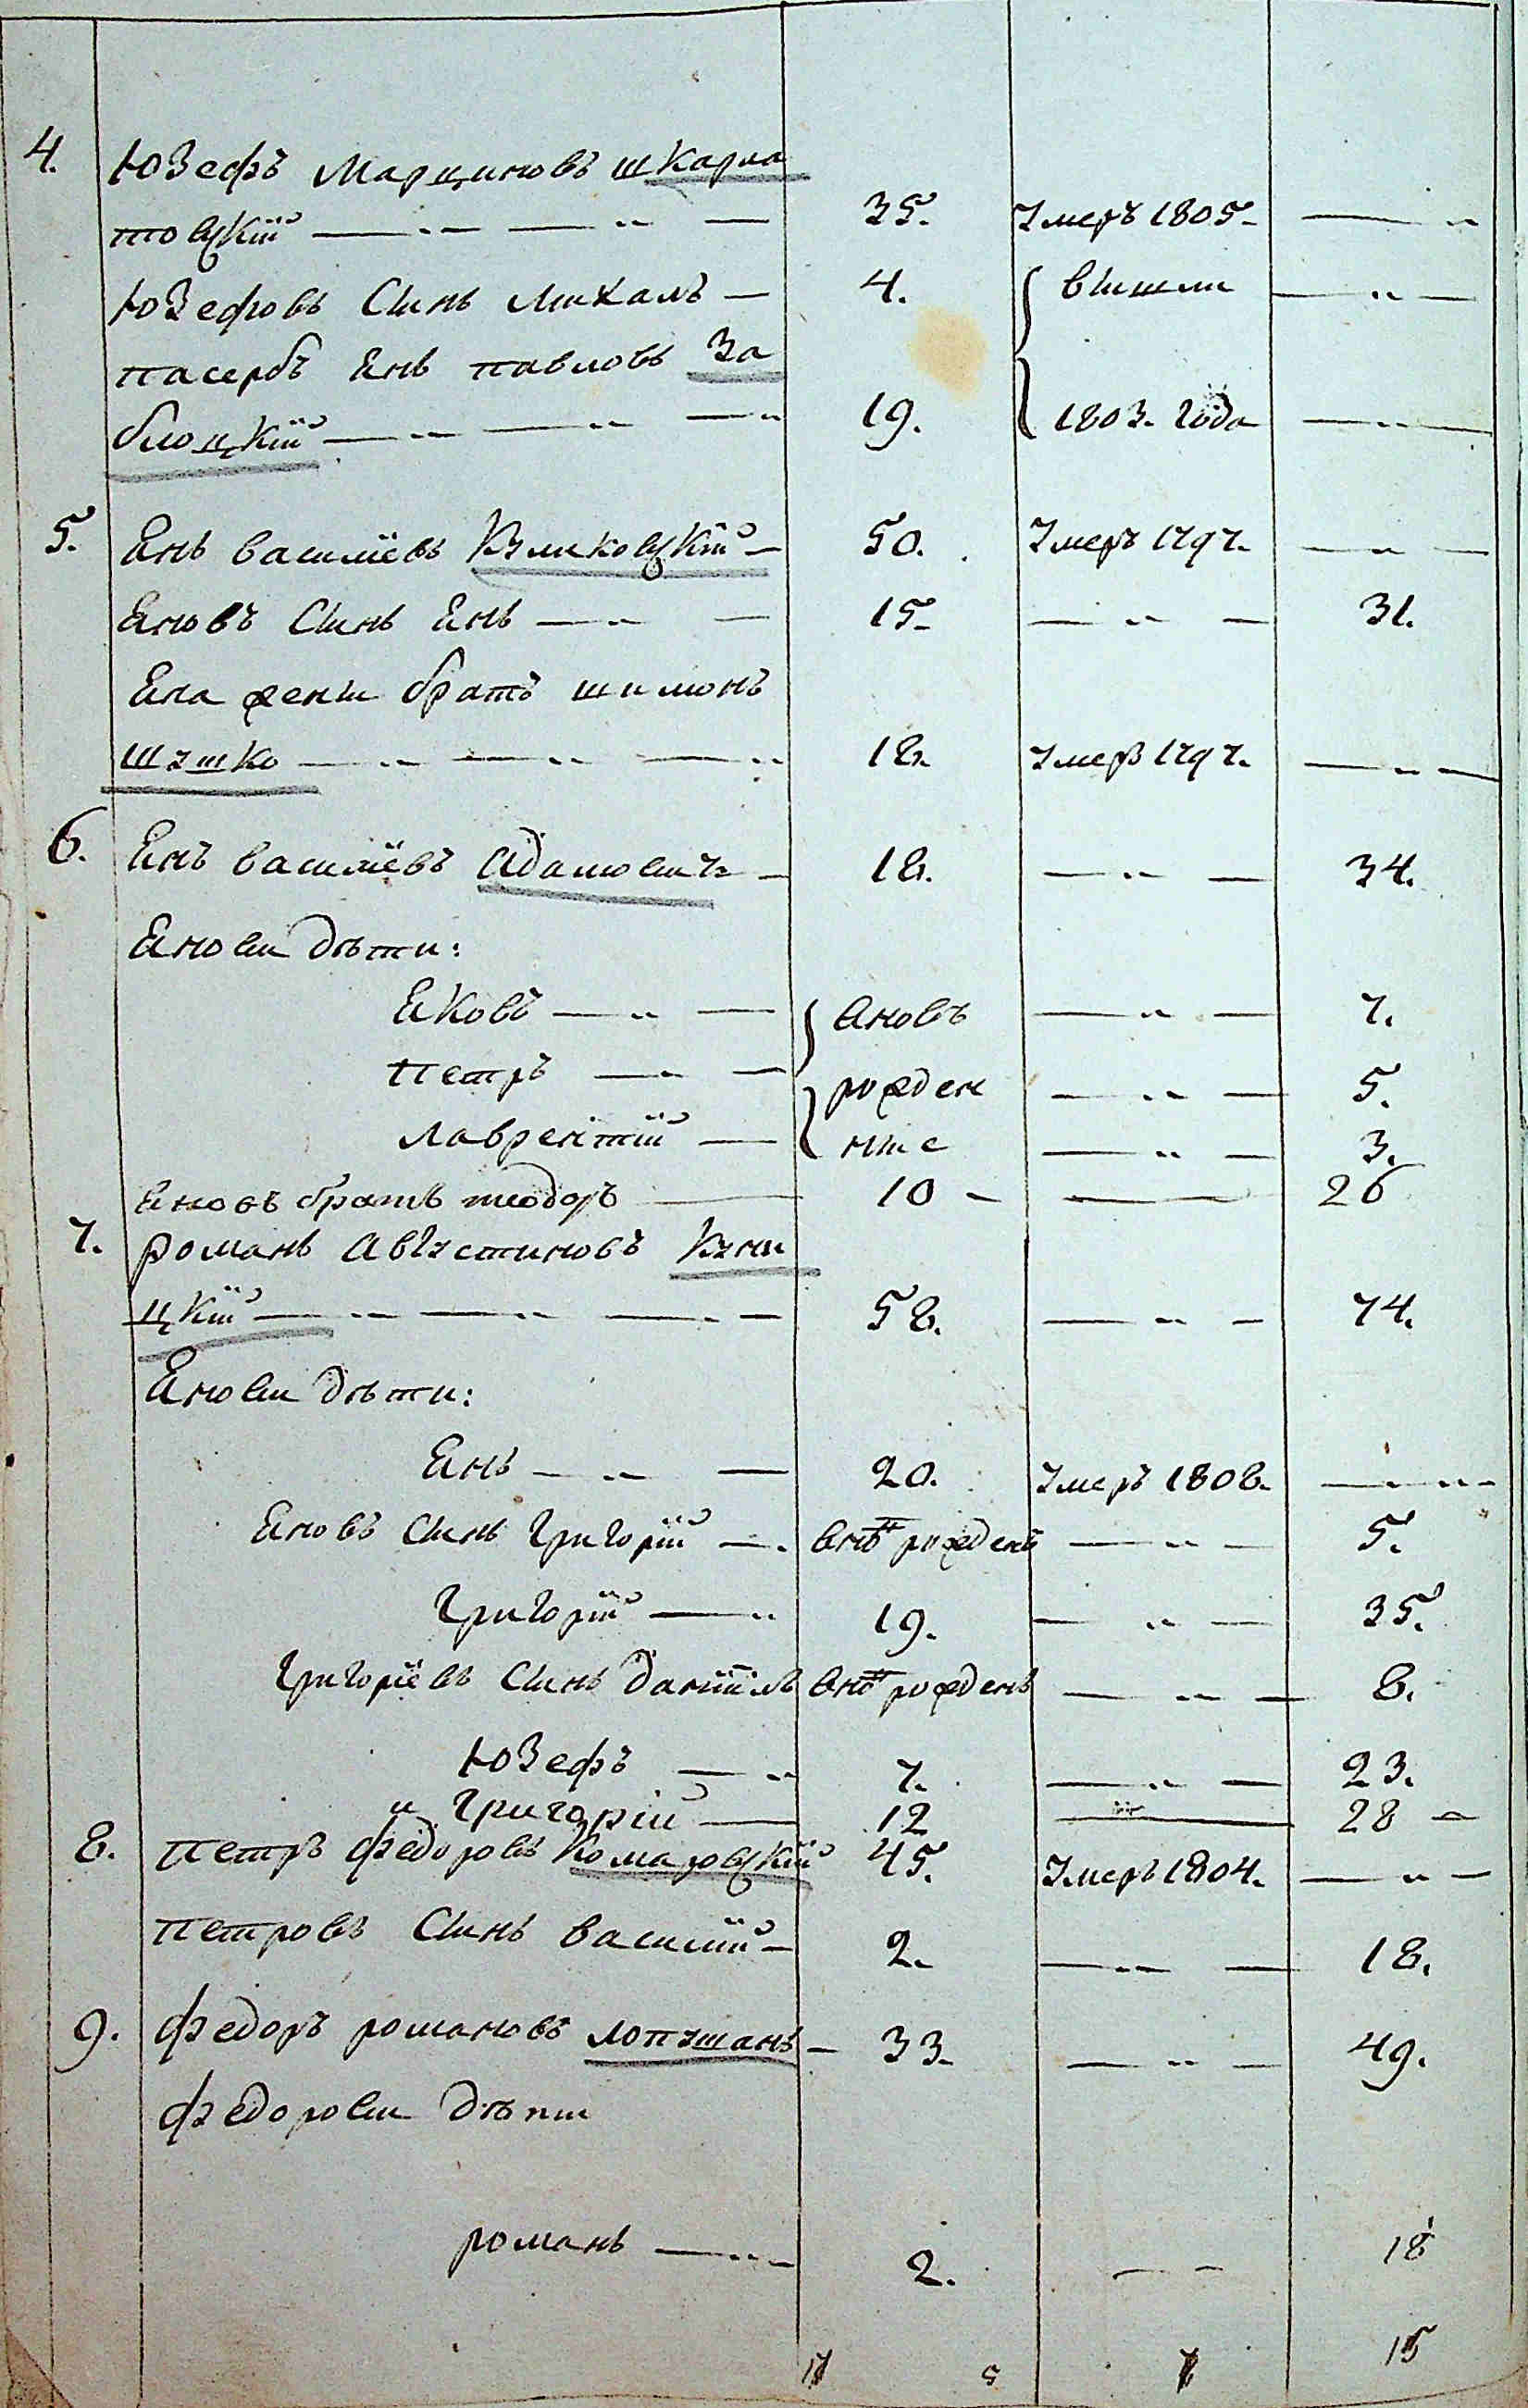 4. Юзефъ Марциновъ шкарла
товскій — „ — — „ — 35. умеръ 1805. — „
Юзефовъ Сынъ Михалъ — 4. вышли — „ —
пасербъ Янъ павловъ За
блоцкій — „ — — „ — „ 19. 1803. года — „ —
5. Янъ василіевъ Куликовскій — 50. умеръ 1797. — „ —
Яновъ Сынъ Янъ — „ — 15 — „ — 31.
Яна жены братъ шимонъ
шушко — „ — „ — „ 18. умеръ 1797. — „ —
6. Янъ василіевъ Адамовичъ — 18. — „ — 34.
Яновы дѣти:
Яковъ — „ — вновъ — „ — 7.
петръ — „ — рожден — „ — 5.
лаврентій — ные — „ — 3.
Яновъ братъ теодоръ — 10 — — 26
7. романъ Августиновъ Куни
цкій — „ — „ — „ — 58. — „ — 74.
Яновы дѣти:
Янъ — „ — 20. умеръ 1808. — „ „
Яновъ Сынъ Григорій — „ внов рожденъ — „ — 5.
Григорій — „ 19. — „ — 35.
Григоріевъ Сынъ Даніилъ внов рожденъ — „ — 8.
Юзефъ — „ 7. — „ — 23.
и Григорій — 12 — 28 —
8. петръ федоровъ Комаровскій 45. умеръ 1804. — „ —
петровъ Сынъ василій — 2. — „ — 18.
9. федоръ романовъ лопушанъ — 33. — „ — 49.
федоровы дѣти
романъ — „ — 2. — — 18
15